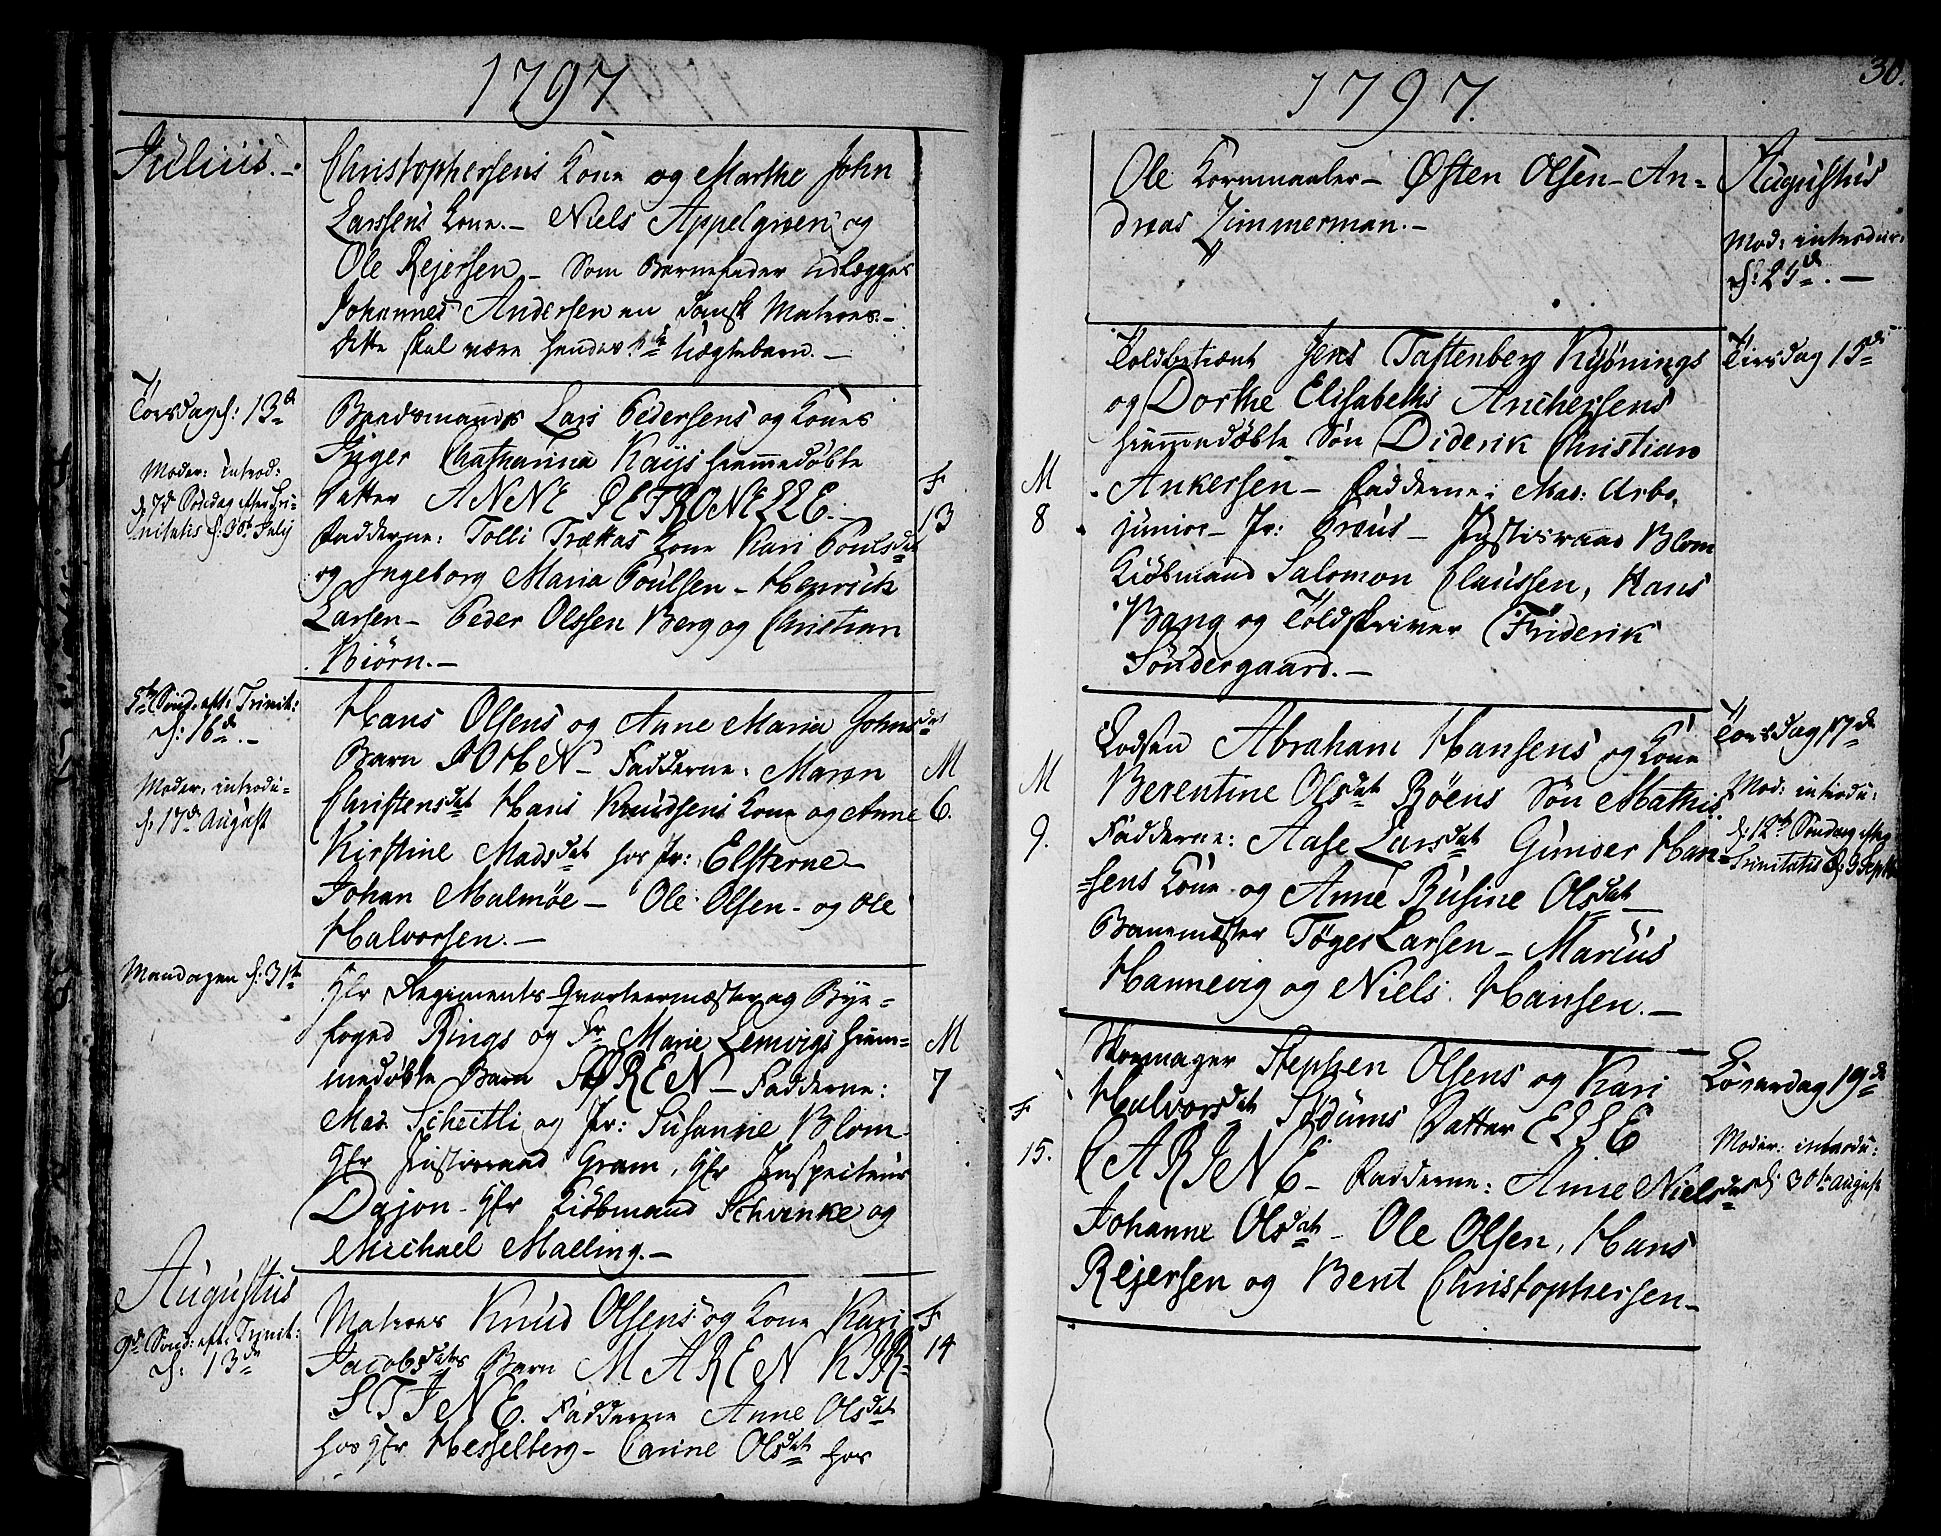 1797
Julius.-
Christophersens Kone og Marthe John
Larssens Kone.- Niels Appelgreen og
Ole Rejersen - Som Barnefader Udlægges
Johannes Andersen en Dansk Matros.-
dette skal være hendes 1te Uægtebarn.-
Torsdag d: 13d
Moder: introd:
d. 7de Søndag efter Tri-
nitatis d: 30te July
Baadsmands Lars Pedersens og Kones
Inger Chatharina Kaijs hiemmedøbte
Datter ANNE PETRONELLE.
Fadderne: Tolli Trættas Kone Kari Poulsdat
og Ingeborg Maria Poulsen - Henrich
Larsen - Peder Olssen Berg og Christian
Biörn.-
F
13
5te Sönd. eft: Trinit:
d: 16de.-
Moder, introdu-
d: 17de August
Hans Olsens og Anne Maria Johnsdat
Barn JOHEN - Fadderne: Maren
Christensdat Hans Knudsens Kone og Anne
Kirstine Madsdat hos Jr: Elsterne -
Johan Malmöe - Ole Olsen - og Ole
Halvorsen.-
M
6.
Mandagen d: 31te
Hr Regiments Qvarteermæster og Bye-
foged Rings og Fr Marie Lemvigs hiem-
medøbte Barn SØREN - Fadderne:
Mad. Scheitli og Jr: Susanne Blom
Hr Justisraad Gram, Hr Inspecteur
Dajon - Hr Kiöbmand Schvenke og
Michael Malling.-
M
7
Augustus
9de Sönd: eft: Trinit:
d: 13de
Matros Knud Olsens og Kone Kari
Jacobsdatrs Barn MAREN KIR-
STINE. Fadderne Anne Olsdat
hos Hr Hesselberg - Carine Olsdat hos
F
14
1797.
30.
Ole Kornmaaler - Østen Olsen - An-
dreas Zimmerman.-
Augustus
Mod: introdu:
d: 25d.-
M
8
Toldbetient Jens Tastenberg Kyönings
og Dorthe Elisabeths Anchersens
hiemmedøbte Sön Diderik Christian
Ankersen - Fadderne: Mad: Arbo,
junior - Jr: Creus - Justisraad Blom
Kiöbmand Salomon Claussen, Hans
Bang og Toldskriver Friderik
Söndergaard.-
Tirsdag 15de
M
9.
Lodsen Abraham Hansens og Kone
Berentine Olsdat Röens Sön Mathis.
Fadderne: Aase Larsdat Gunder Han-
-sens Kone og Anne Rusine Olsdat
Banemester Töger Larsen - Marcus
Hannevig og Niels Hansen.-
Torsdag 17de
Mod: introdu:
d: 12te Söndag efter
Trinitatis d: 3 Sept
F
15.
Skomager Stephen Olsens og Kari
Halvorsdat Skdums Datter ELSE
CARINE - Fadderne: Anne Nielsdat
Johanne Olsdat - Ole Olsen, Hans
Rejersen og Bent Christophersen -
Löverdag 19de
Moder: introdu:
d: 30te August